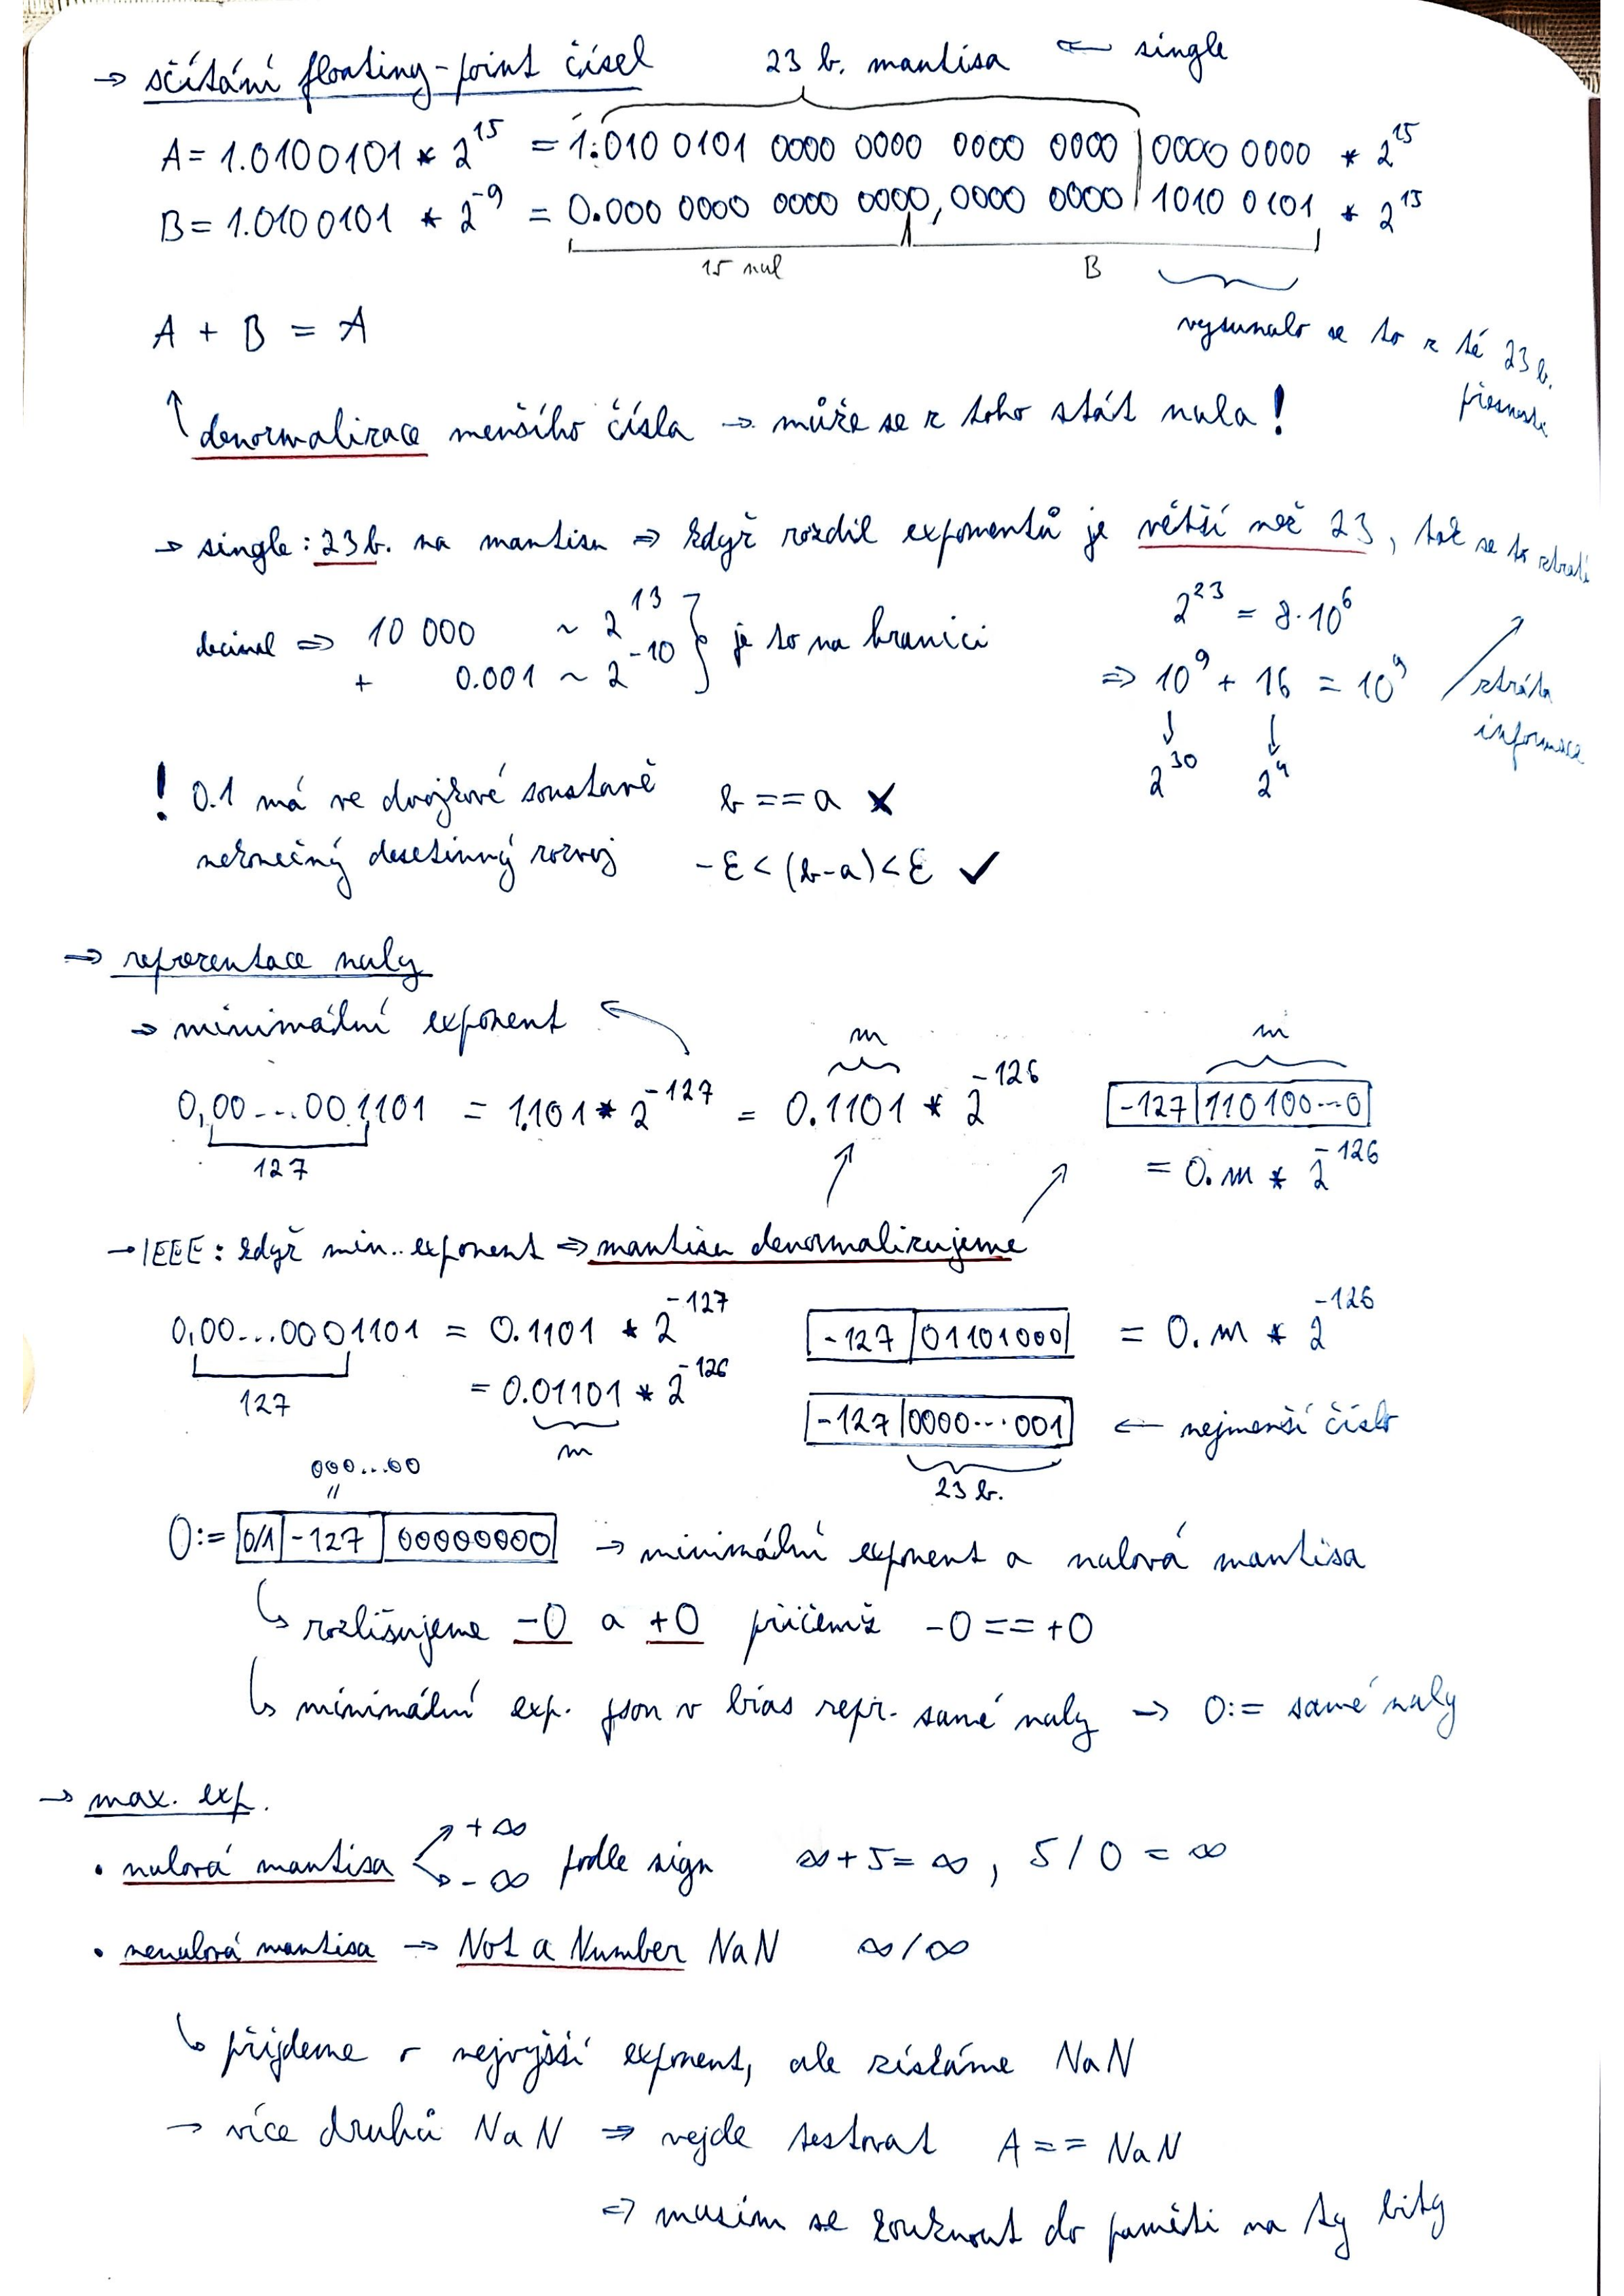 → sčítání floating-point čísel 23 b. mantisa ← single
A = 1.0100101 * 2^15 = 1.010 0101 0000 0000 0000 0000 | 0000 0000 * 2^15
B = 1.0100101 * 2^-9 = 0.000 0000 0000 0000, 0000 0000 | 1010 0101 * 2^15
15 nul B
A + B = A vysunulo se to z té 23 b. přesnosti
↑ denormalizace menšího čísla → může se z toho stát nula!
→ single: 23 b. na mantisu ⇒ když rozdíl exponentů je větší než 23, tak se to ztratí
decimal ⇒ 10 000 ~ 2^13 } je to na hranici 2^23 = 8·10^6
+ 0.001 ~ 2^-10 ⇒ 10^9 + 16 = 10^9 ztráta informace
↓ 2^30 ↓ 2^4
! 0.1 má ve dvojkové soustavě b == a ✗
nekonečný desetinný rozvoj -ε < (b-a) < ε ✓
→ reprezentace nuly
→ minimální exponent
m m
0,00...001101 = 1.101 * 2^-127 = 0.1101 * 2^-126 -127 | 110100...0
127 = 0.m * 2^-126
→ IEEE: když min. exponent ⇒ mantisu denormalizujeme
0,00...0001101 = 0.1101 * 2^-127 -127 | 01101000 = 0.m * 2^-126
127 = 0.01101 * 2^-126 -127 | 0000...001 ← nejmenší číslo
m 23 b.
000...00
"
0:= 0/1 | -127 | 00000000 → minimální exponent a nulová mantisa
↳ rozlišujeme -0 a +0 přičemž -0 == +0
↳ minimální exp. jsou v bias repr. samé nuly → 0:= samé nuly
→ max. exp.
• nulová mantisa +∞ -∞ podle sign ∞+5=∞, 5/0 = ∞
• nenulová mantisa → Not a Number NaN ∞/∞
↳ přijdeme o nejvyšší exponent, ale získáme NaN
→ více druhů NaN ⇒ nejde testovat A == NaN
⇒ musím se kouknout do paměti na ty bity